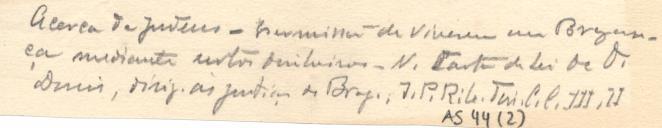 Acerca de Judeus – Permissão de viverem em Bragan-
ça mediante certos dinheiros – V. Carta de lei de D.
Denis, dirig. às justiças de Brag., J. P. Rib. III, II
AS 44 (2)